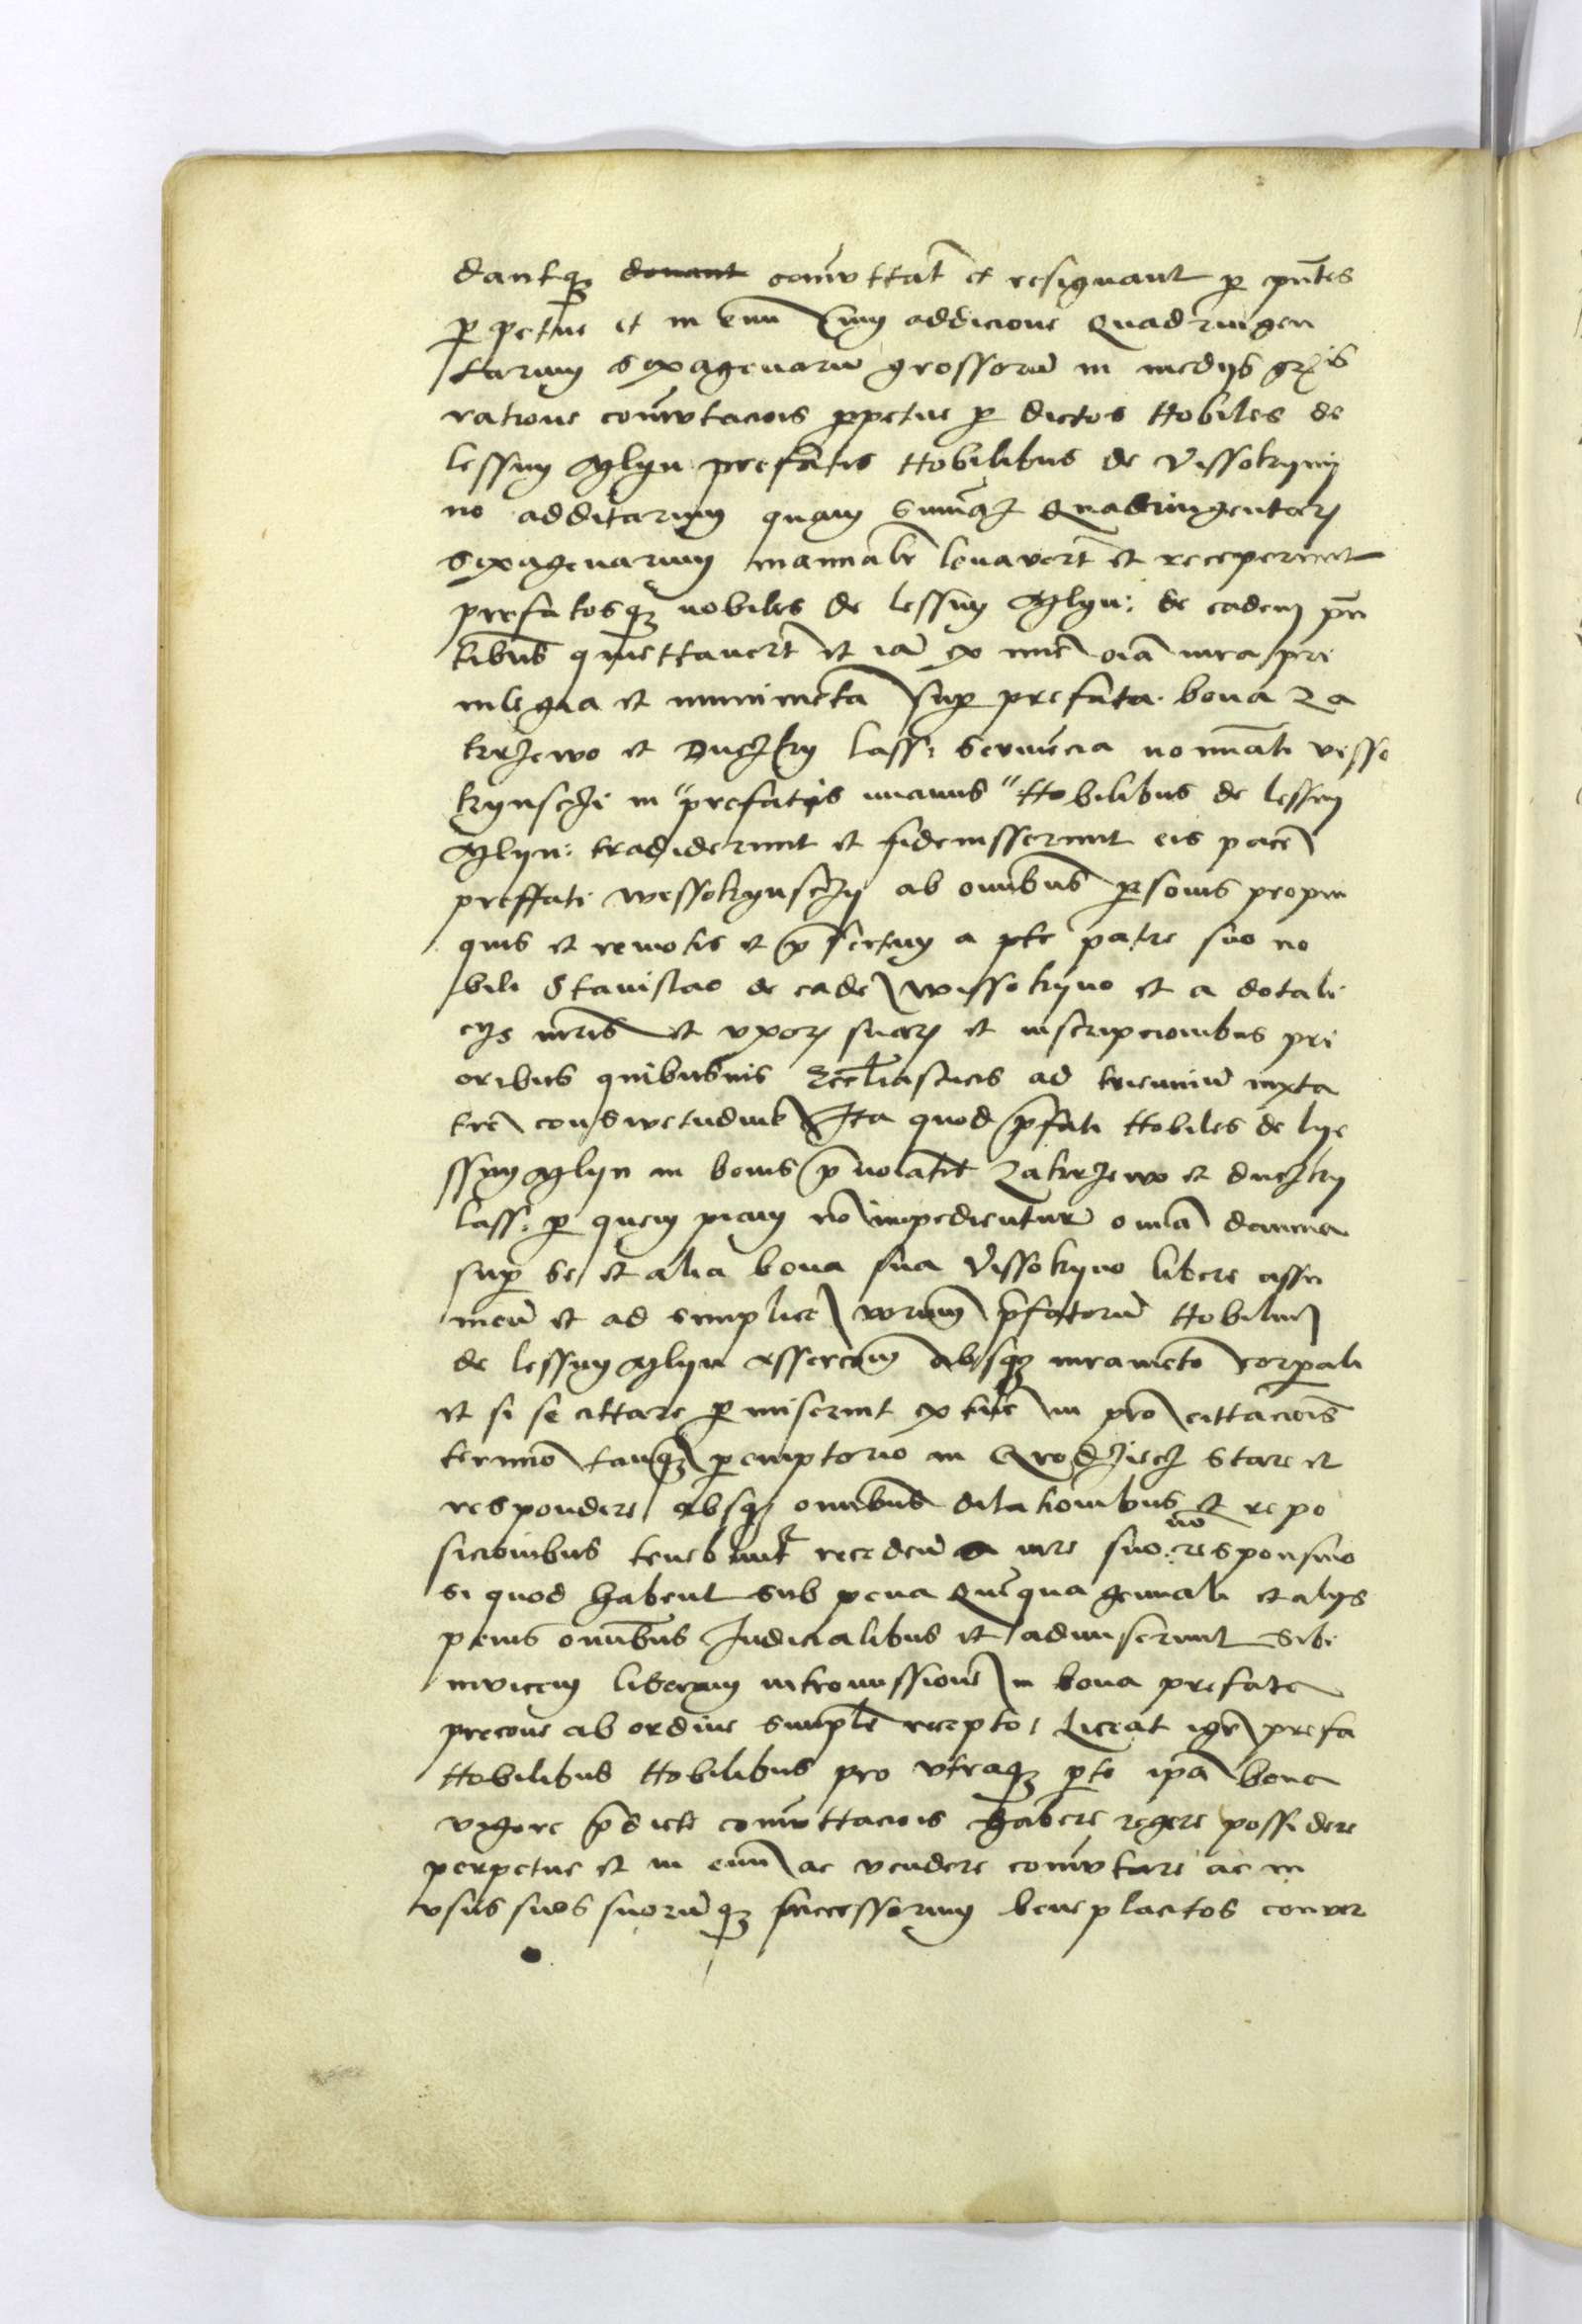 dantq3 donant comuttat et resignant p pntes
ppetue et in euu cum addicione Quadringen
tarum sexagenaru grossoru in medijs gris
ratione comutacois ppetue p dictos Nobiles de
lessny Mlyn prefatis Nobilibus de Vissokyny
no additarum quam summa Quadringentar
sexagenarum manualr leuavert et receperunt
prefatosq3 nobiles de lessny Mlyn: de eadem pn
tibus quiettauert et ia ex nuc oia iura pri
uilegia et munimeta sup prefata bona Za
krzewo et Duczky lass: Seruicia nominati visso
kynsczi in prefatis manus Nobilibus de lessny
Mlyn: tradiderunt et fideiusserunt eis pace
preffati wessokynsczy ab omibus psonis propin
quis et remotis et psertim a pte patre suo no
bili Stanislao de eade wissokyno et a dotali
cijs mris et vxor suar et inscripcionibus pri
oribus quibusuis Eccliasticis ad trienniu iuxta
tre conswetudine Ita quod pfati Nobiles de lye
ssny Mlyn in bonis pnoiatis Zakrzewo et duczky
lass: p quem piam no impedientur omia damna
sup se et alia bona sua Vissokyno libere assu
meu et ad simplice vorum pfatoru Nobiliu
de lessny Mlyn assercom absq3 iuramento corpali
et si se cittare pmiserint ex tuc in pro cittacois
termino tanq3 pemptorio in Grodziecz stare et
respondere absq3 omibus dilationibus et repo
sicionibus tenebuntr recedeu a iure suo no responsiuo
si quod habent sub pena Quiquagennali et alijs
penis omibus Judicialibus et admiserunt sibi
inuicem liberam intromissione in bona prefata
precone ab ordine simplr recepto, Liceat igr prefa
Nobilibus Nobilibus pro vtraq3 pte ipa bona
vigore pdicte comuttacois habere regere possidere
perpetue et in euu ac vendere comutare ac in
vsus suos suoruq3 successorum beneplacitos conuer